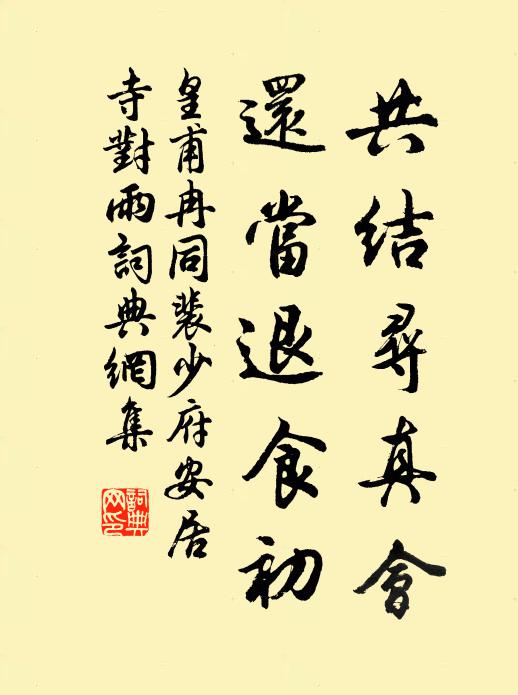 共结尋真會
還當退食初
皇甫冉同裴少府安居
寺對雨詞典網集
詞典網印